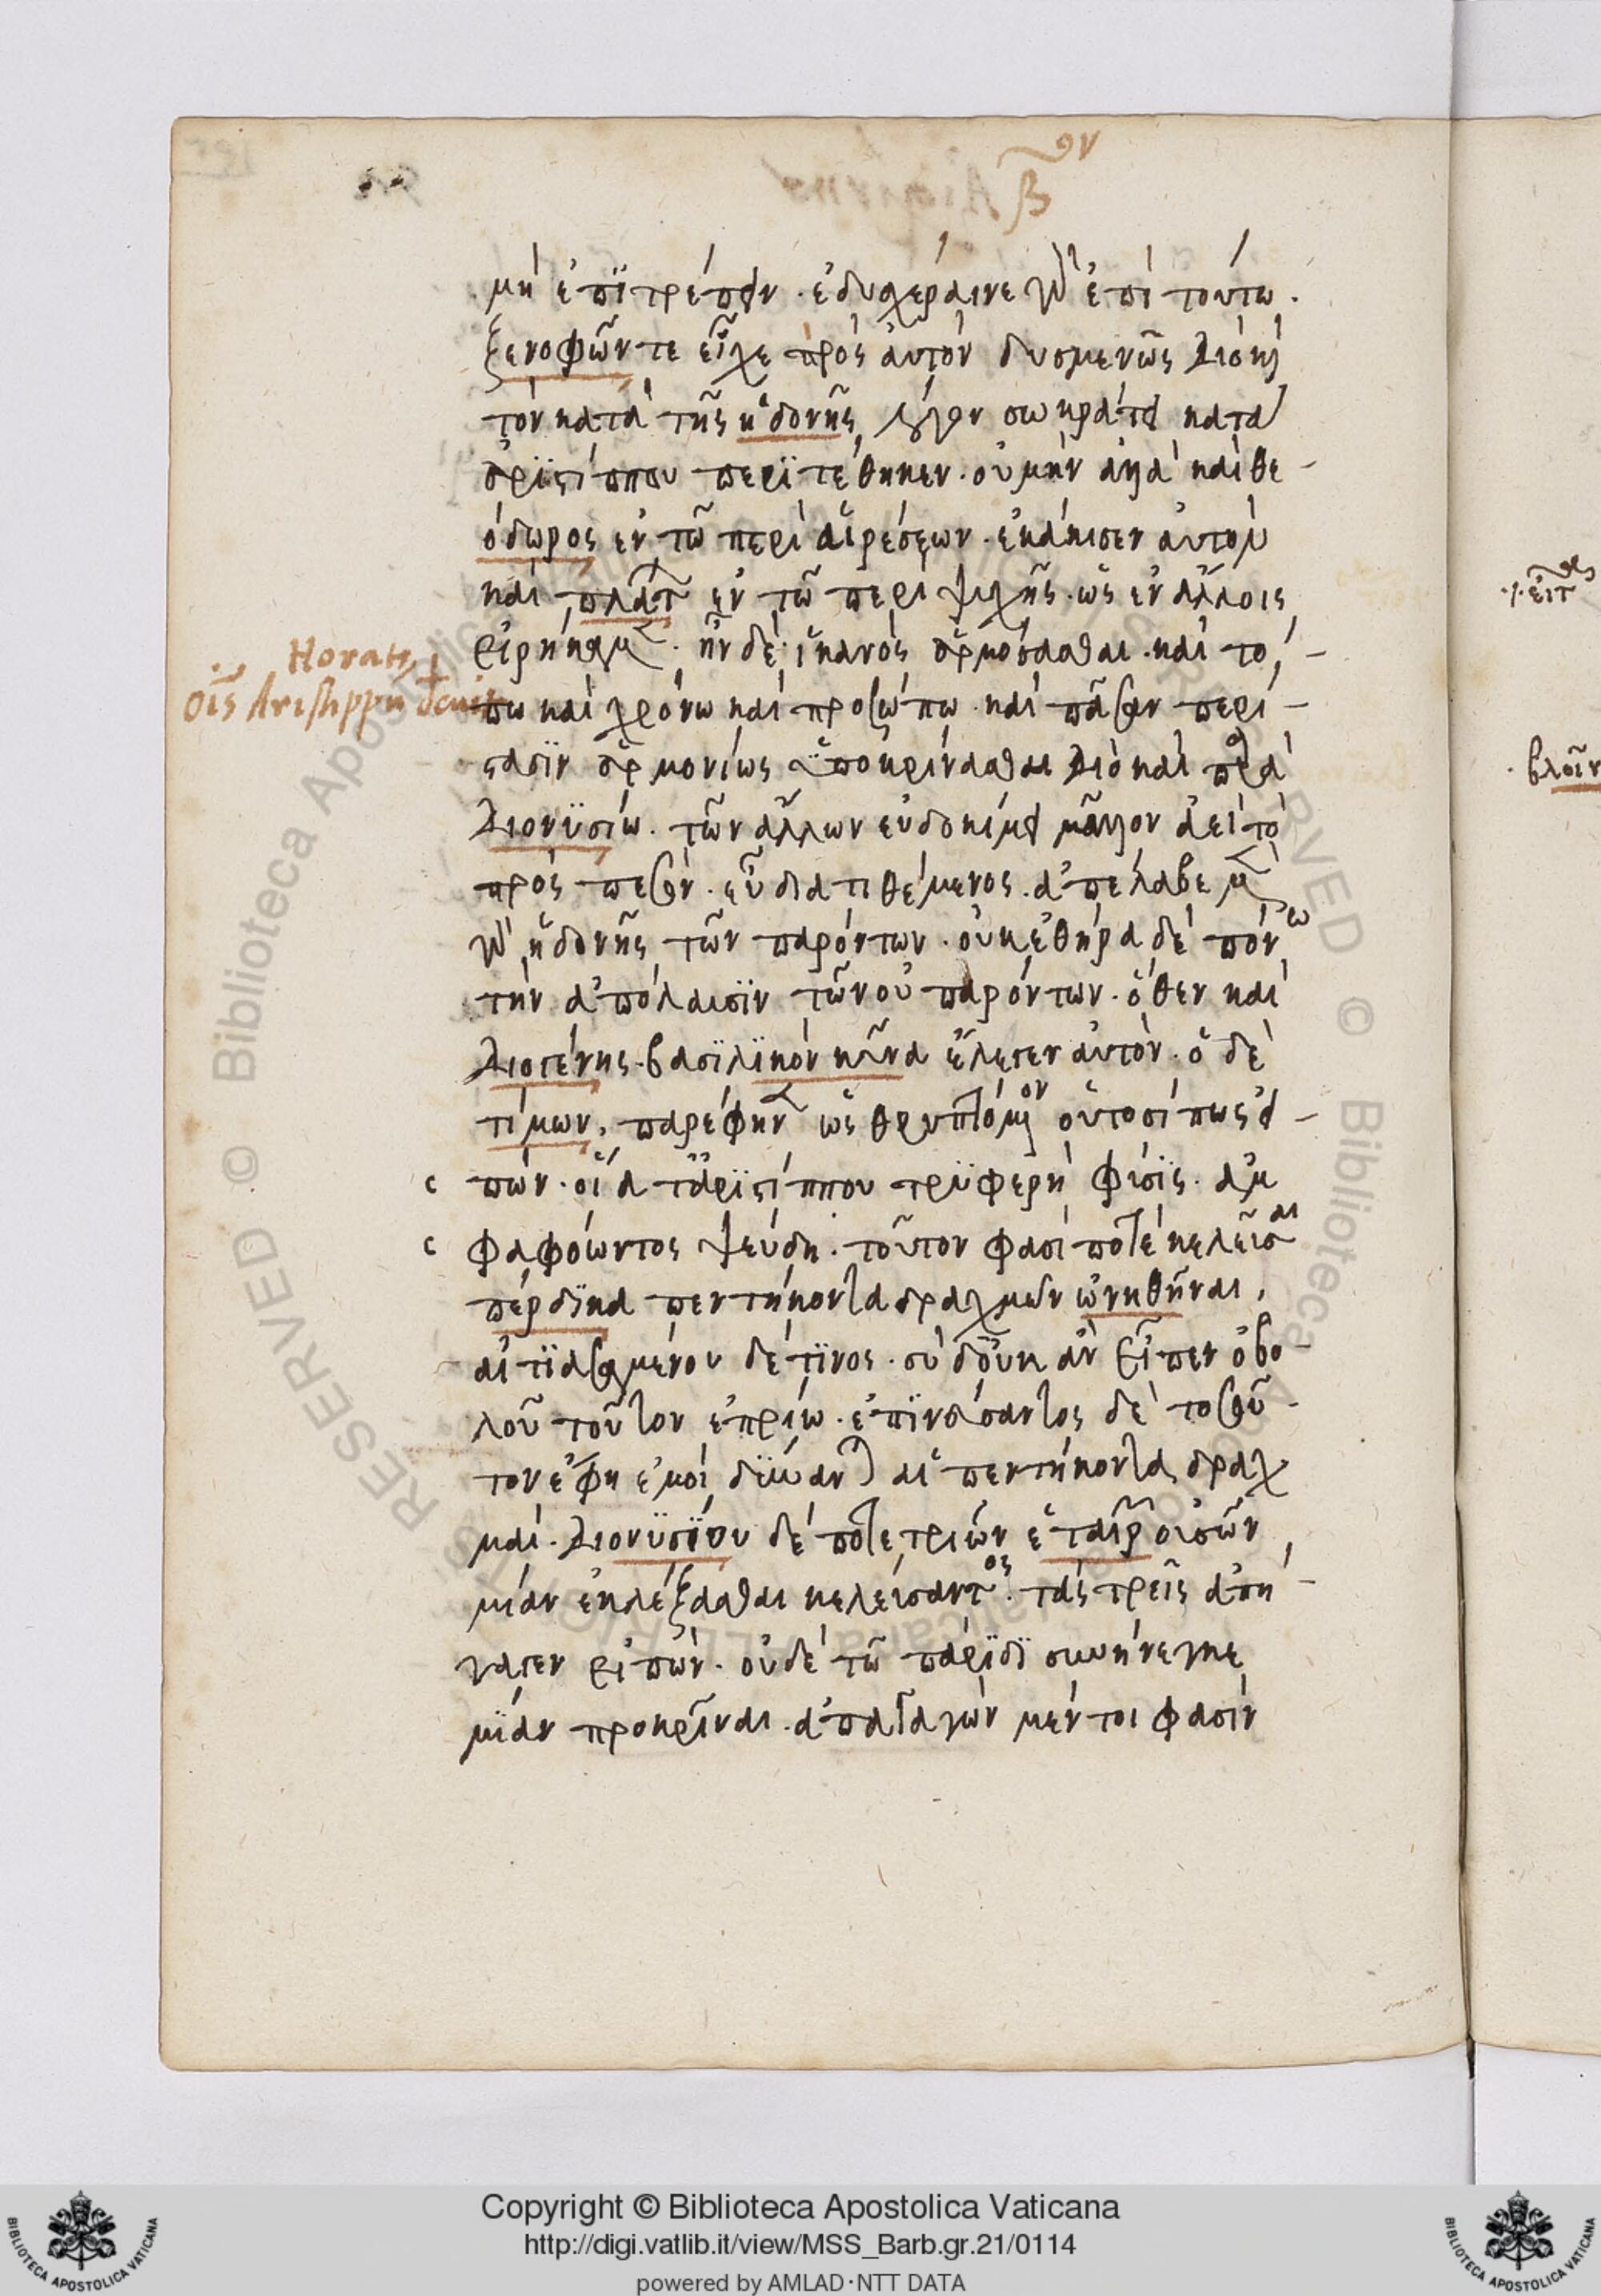 β ον
μὴ ἐπϊτρέπειν. ἐδυχέραινε γ(ὰρ) ἐπὶ τούτω.
ξενοφῶν τε εἶχε πρὸς ἀυτὸν δυσμενῶς διὸ καὶ
τὸν κατὰ τῆς ἡδονῆς λόγον σωκράτει κατὰ
ἀρϊστίππου περϊτέθηκεν. οὐ μὴν ἀλλὰ καὶ θε-
όδωρος ἐν τῶ περὶ αἱρέσεων. ἐκάκισεν ἀυτὸν
καὶ πλάτ ἐν τῶ περὶ ψυχῆς. ὡς ἐν ἄλλοις
εἰρήκαμ. ἦν δὲ ἱκανὸς ἁρμόσασθαι. καὶ τό-
πω καὶ χρόνω καὶ προσώπω. καὶ πᾶσαν περί-
στασϊν ἁρμονίως ὑποκρίνασθαι διὸ καὶ παρὰ
Διονϋσίω. τῶν ἄλλων εὐδοκίμει μᾶλλον ἀεὶ τὸ
πρὸς πεσὸν. εὖ διατιθέμενος. ἀπέλαβε μ(ὲν)
γ(ὰρ) ἡδονῆς τῶν παρόντων. οὐκ ἐθήρα δὲ πόνω
τὴν ἀπόλαυσϊν τῶν οὐ παρόντων. ὅθεν καὶ
Διογένης. βασϊλϊκὸν κύνα ἔλεγεν ἀυτὸν. ὁ δὲ
τίμων, παρέφην ὡς θρυπτόμ(εν)ον οὑτοσί πως εἰ-
πὼν. οἷά τ' ἀρϊστίππου τρϋφερὴ φύσϊς. ἀμ
φαφόωντος ψεύδη. τοῦτον φασί ποτὲ κελεῦσαι
πέρδϊκα πεντήκοντα δραχμῶν ὠνηθῆναι,
αἰτϊασαμένου δέ τϊνος. σὺ δ' οὐκ ἂν εἶπεν ὀβο-
λοῦ τοῦτον ἐπρίω. ἐπϊνεύσαντος δὲ τοσοῦ-
τον ἔφη ἐμοὶ δύνανται αἱ πεντήκοντα δραχ
μαὶ. Διονϋσϊου δέ ποτε τριῶν ἑταιρ οὐσῶν
μίαν ἐκλέξασθαι κελεύσαντος. τὰς τρεῖς ἀπή-
γαγεν εἰπὼν. οὐδὲ τῶ πάρϊδϊ συνήνεγκε
μϊὰν προκρῖναι. ἀπαγαγὼν μέν τοι φασὶν
Horat,
oīs Aristippū
βλοῖν
Copyright © Biblioteca Apostolica Vaticana
http://digi.vatlib.it/view/MSS_Barb.gr.21/0114
powered by AMLAD·NTT DATA